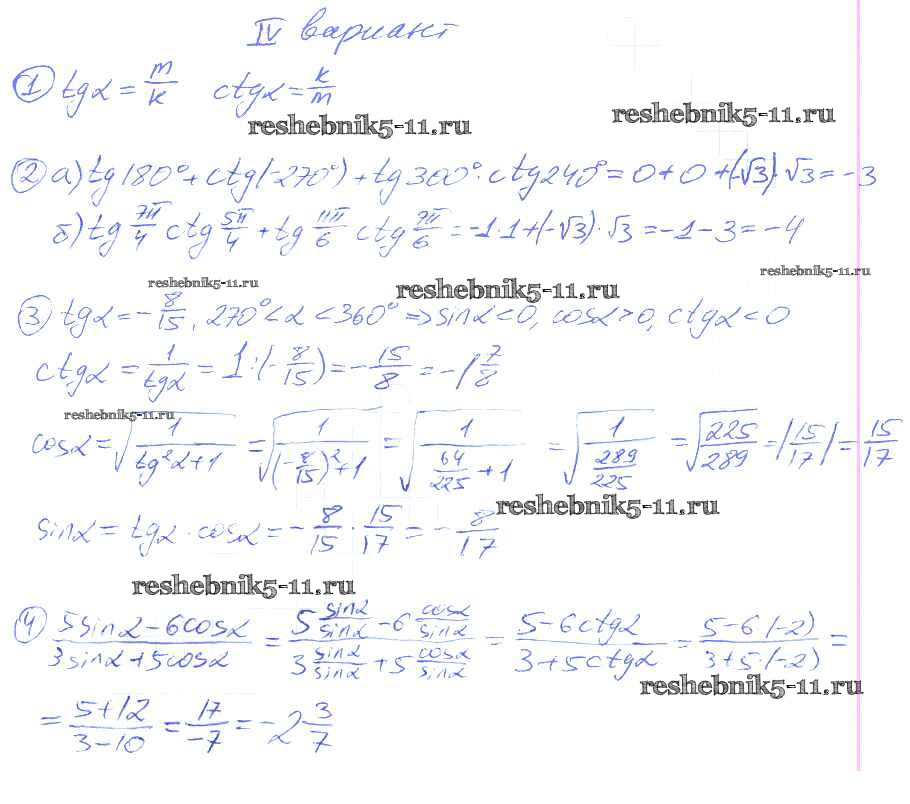 IV вариант
① tgα = m/k ctgα = k/m
reshebnik5-11.ru reshebnik5-11.ru
② а) tg180° + ctg(-270°) + tg300° · ctg240° = 0 + 0 + (-√3) · √3 = -3
б) tg 7π/4 ctg 5π/4 + tg 11π/6 ctg 7π/6 = -1 · 1 + (-√3) · √3 = -1 - 3 = -4
reshebnik5-11.ru reshebnik5-11.ru reshebnik5-11.ru
③ tgα = - 8/15, 270° < α < 360° ⇒ sinα < 0, cosα > 0, ctgα < 0
ctgα = 1/tgα = 1 : (- 8/15) = - 15/8 = -1 7/8
reshebnik5-11.ru
cosα = √(1/(tg²α + 1)) = √(1/((- 8/15)² + 1)) = √(1/(64/225 + 1)) = √(1/(289/225)) = √(225/289) = |15/17| = 15/17
reshebnik5-11.ru
sinα = tgα · cosα = - 8/15 · 15/17 = - 8/17
reshebnik5-11.ru
④ (5sinα - 6cosα)/(3sinα + 5cosα) = (5 sinα/sinα - 6 cosα/sinα)/(3 sinα/sinα + 5 cosα/sinα) = (5 - 6ctgα)/(3 + 5ctgα) = (5 - 6·(-2))/(3 + 5·(-2)) =
reshebnik5-11.ru
= (5 + 12)/(3 - 10) = 17/-7 = -2 3/7